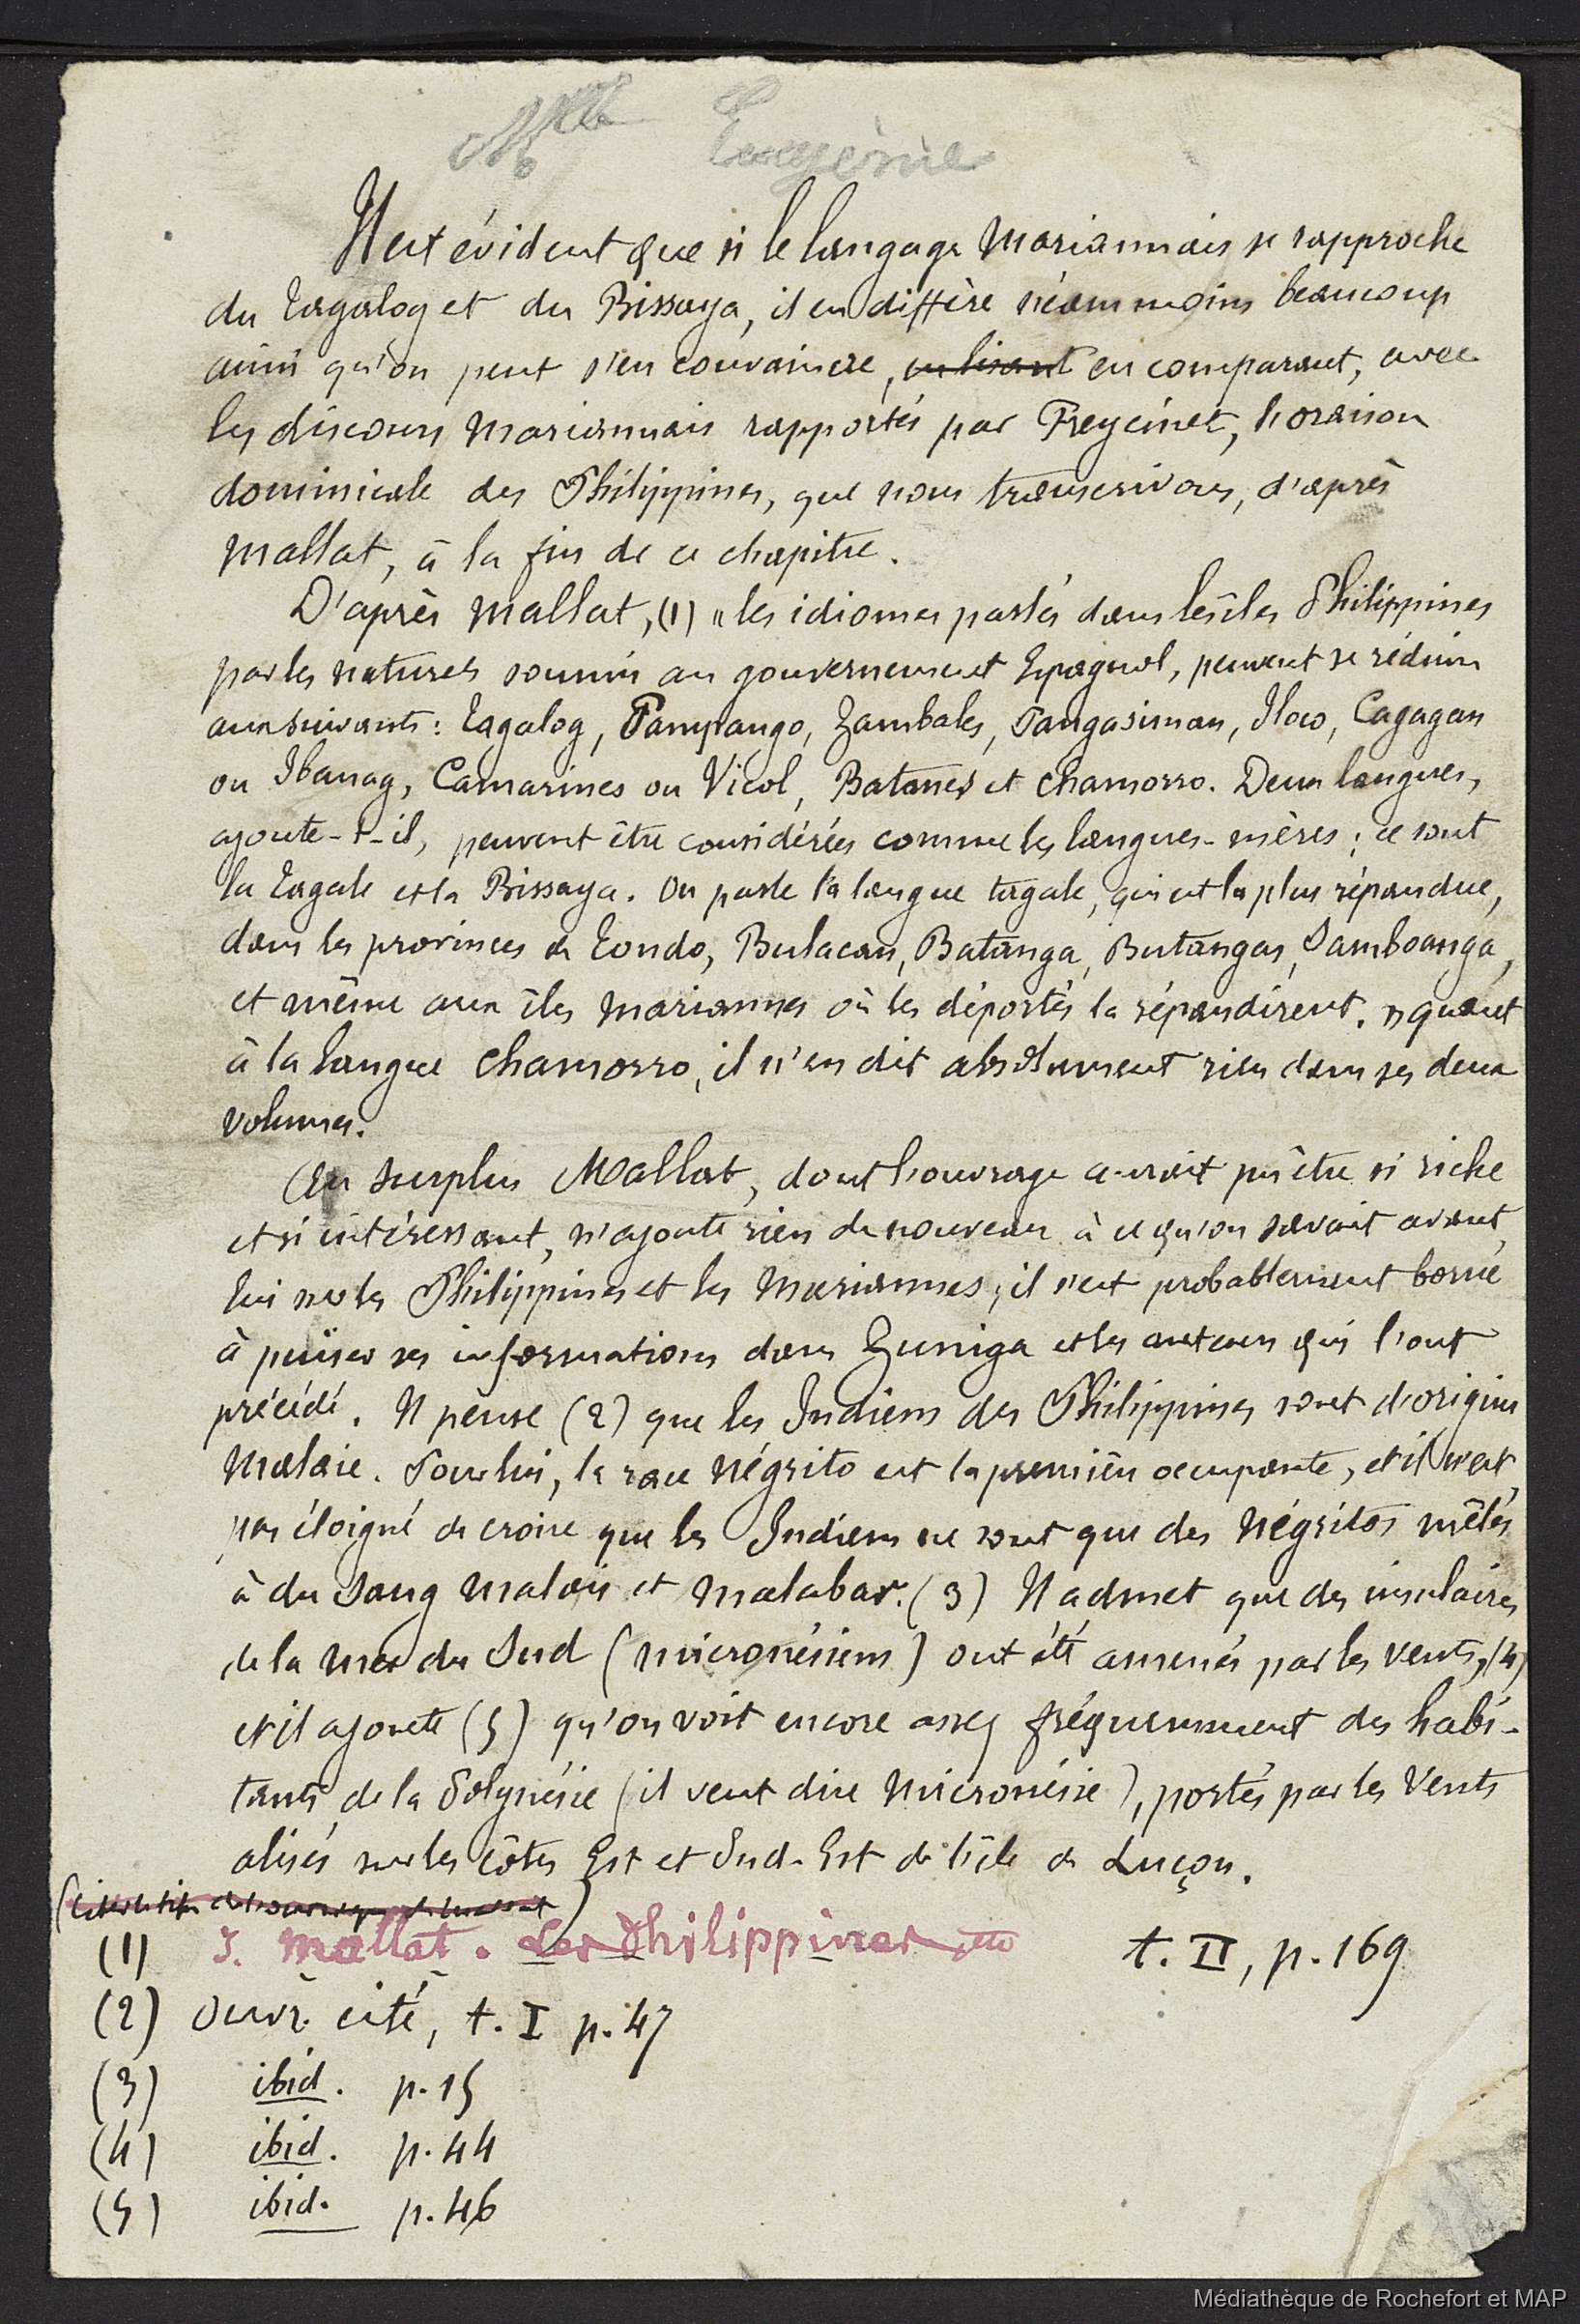 Mlle Eugénie
Il est évident que si le langage Mariannais se rapproche
du Tagalog et du Bissaya, il en diffère néammoins beaucoup
ainsi qu'on peut s'en convaincre, en lisant en comparant, avec
les discours Mariannais rapportés par Freycinet, l'oraison
dominicale des Philippines, que nous transcrivons, d'après
Mallat, à la fin de ce chapitre.
D'après Mallat, (1) "les idiomes parlés dans les îles Philippines
par les naturels soumis au gouvernement Epagnol, peuvent se réduire
aux suivants : Tagalog, Pampango, Zambales, Pangasinan, Iloco, Cagagan
ou Ibanag, Camarines ou Vicol, Batanes et Chamorro. Deux langues,
ajoute-t-il, peuvent être considérées comme les langues-mères ; ce sont
la Tagale et la Bissaya. On parle la langue tagale, qui est la plus répandue,
dans les provinces de Tondo, Bulacan, Batanga, Butangas, Samboanga,
et même aux îles Mariannes où les déportés la répandirent. " quant
à la langue Chamorro, il n'en dit absolument rien dans ses deux
volumes.
Au surplus Mallat, dont l'ouvrage aurait pu être si riche
et si intéressant, n'ajoute rien de nouveau à ce qu'on savait avant
lui sur les Philippines et les Mariannes ; il s'est probablement borné
à puiser ses informations dans Zuniga et les auteurs qui l'ont
précédé. Il pense (2) que les Indiens des Philippines sont d'origine
Malaie. Pour lui, la race Négrito est la première occupante, et il n'est
pas éloigné de croire que les Indiens ne sont que des Négritos mêlés
à du sang Malais et Malabar. (3) Il admet que des insulaires
de la Mer du Sud (Micronésiens) ont été amenés par les vents, (4)
et il ajoute (5) qu'on voit encore assez fréquemment des habi-
tants de la Polynésie (il veut dire Micronésie), portés par les Vents
alisés sur les côtes Est et Sud-Est de l'île de Luçon.
(1) J. Mallat. Les Philippines, etc t. II, p. 169
(2) Ouvr. cité, t. I p. 47
(3) ibid. p. 15
(4) ibid. p. 44
(5) ibid. p. 46
Médiathèque de Rochefort et MAP